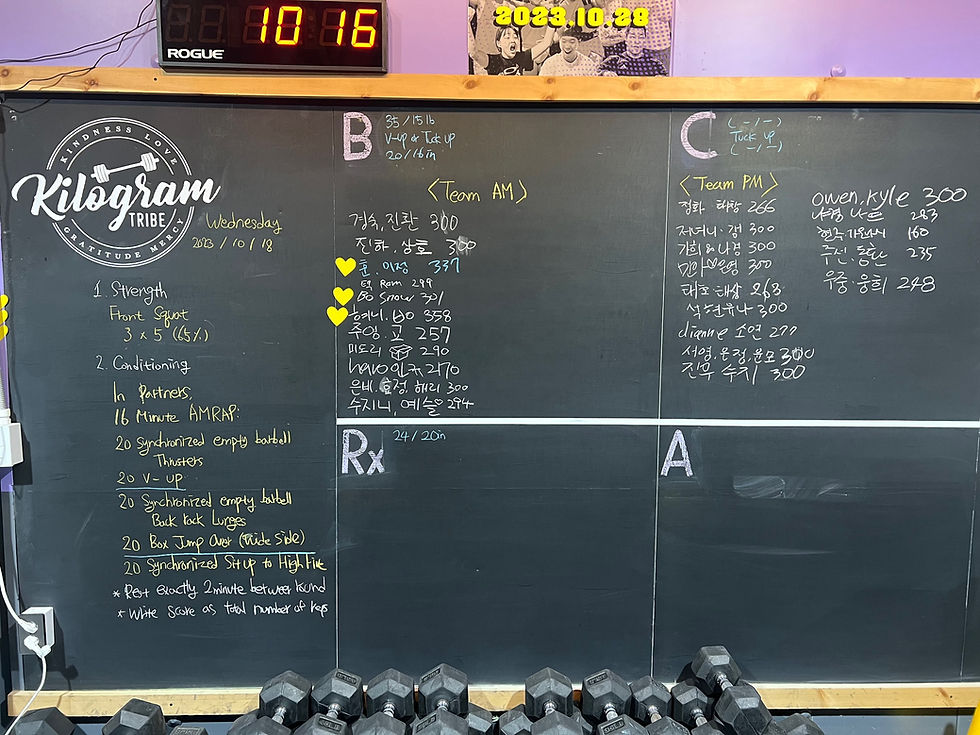 10 16
ROGUE
2023.10.28
KINDNESS LOVE
Kilogram
TRIBE
GRATITUDE MERCY
Wednesday
2023 / 10 / 18
1. Strength
Front Squat
3 x 5 (65%)
2. Conditioning
In Partners,
16 Minute AMRAP:
20 Synchronized empty barbell
Thrusters
20 V-up
20 Synchronized empty barbell
Back Rack Lunges
20 Box Jump Over (Wide Side)
20 Synchronized Sit up to High Five
* Rest exactly 2 minute between round
* Write Score as total number of Reps
B
35 / 15 lb
V-up or Tuck up
20 / 16 in
<Team AM>
경숙, 진환 300
진하, 상호 300
훈, 이정 337
Ram 299
Bo Snow 301
358
주앙, 교 257
미도리 290
270
은비, 효정, 해리 300
수지니, 예슬 294
C
( - / - )
Tuck up
( - / - )
<Team PM>
정화 266
300
300
300
태호 263
석현 유나 300
dianne 소연 277
서영, 은정, 윤모 300
진우 수지 300
owen, kyle 300
283
160
주신, 동탄 235
우중, 웅희 248
Rx
24 / 20in
A